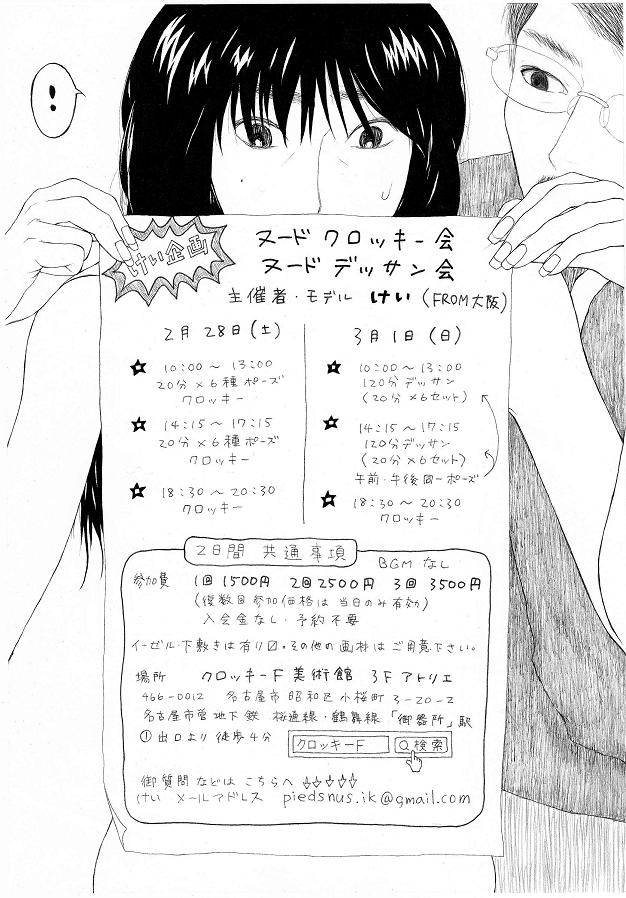 !
けい企画
ヌード クロッキー会
ヌード デッサン会
主催者・モデル けい (FROM大阪)
2月28日(土)
10:00〜13:00
20分×6種ポーズ
クロッキー
14:15〜17:15
20分×6種ポーズ
クロッキー
18:30〜20:30
クロッキー
3月1日(日)
10:00〜13:00
120分デッサン
(20分×6セット)
14:15〜17:15
120分デッサン
(20分×6セット)
午前・午後同一ポーズ
18:30〜20:30
クロッキー
2日間 共通事項
BGMなし
参加費 1回1500円 2回2500円 3回3500円
(複数回参加価格は当日のみ有効)
入会金なし・予約不要
イーゼル・下敷きは有り〼。その他の画材はご用意下さい。
場所 クロッキーF美術館 3Fアトリエ
466-0012 名古屋市昭和区小桜町3-20-2
名古屋市営地下鉄 桜通線・鶴舞線「御器所」駅
①出口より徒歩4分 クロッキーF 検索
御質問などはこちらへ⇩⇩⇩⇩⇩
けい メールアドレス piedsnus.ik@gmail.com